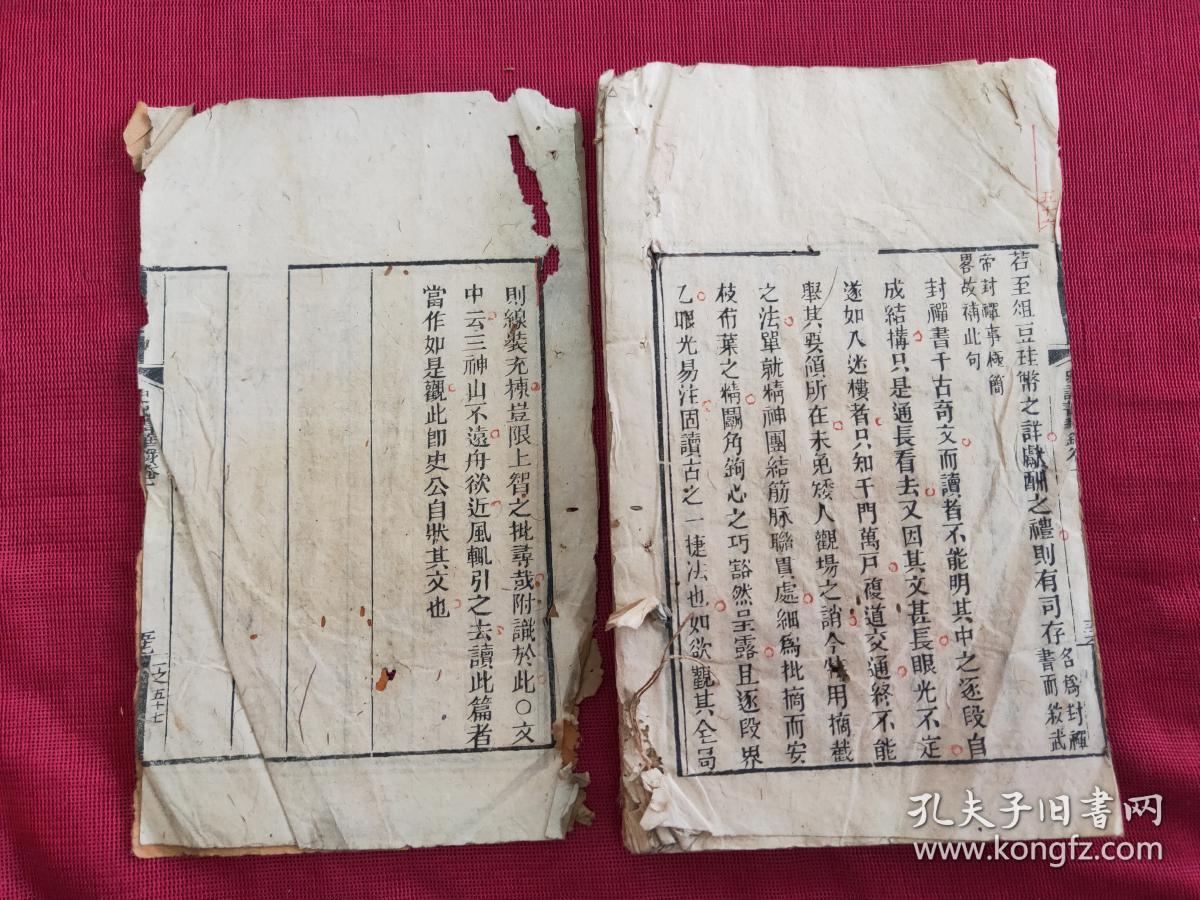 若至俎豆珪幣之詳獻酬之禮則有司存書而敘武名爲封禪
帝封禪事極簡
畧故補此句
封禪書千古奇文而讀者不能明其中之逐段自
成結構只是通長看去又因其文甚長眼光不定
遂如入迷樓者只知千門萬戸複道交通終不能
舉其要領所在未免矮人觀場之誚今特用摘截
之法單就精神團結筋脉聯貫處細爲批摘而安
枝布葉之精鬬角鉤心之巧豁然呈露且逐段界
乙眼光易注固讀古之一捷法也如欲觀其全局
則線裝充棟豈限上智之批尋哉附識於此○文
中云三神山不遠舟欲近風輒引之去讀此篇者
當作如是觀此卽史公自狀其文也
之五十七
孔夫子旧书网
www.kongfz.com